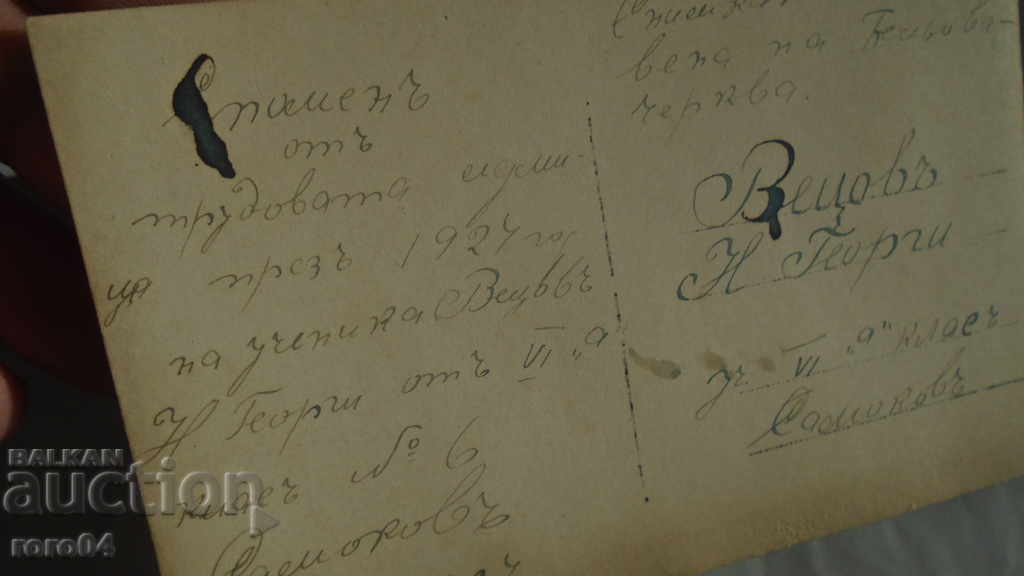 Споменъ
отъ
трудовата седми-
ца презъ 1927 год
на ученика Вецовъ
Н. Георги отъ VI "а"
класъ № 6
Самоковъ
вена на Бельова-
черква.
Вецовъ
Н Георги
уч VI "а" класъ
Самоковъ
BALKAN
auction
roro04